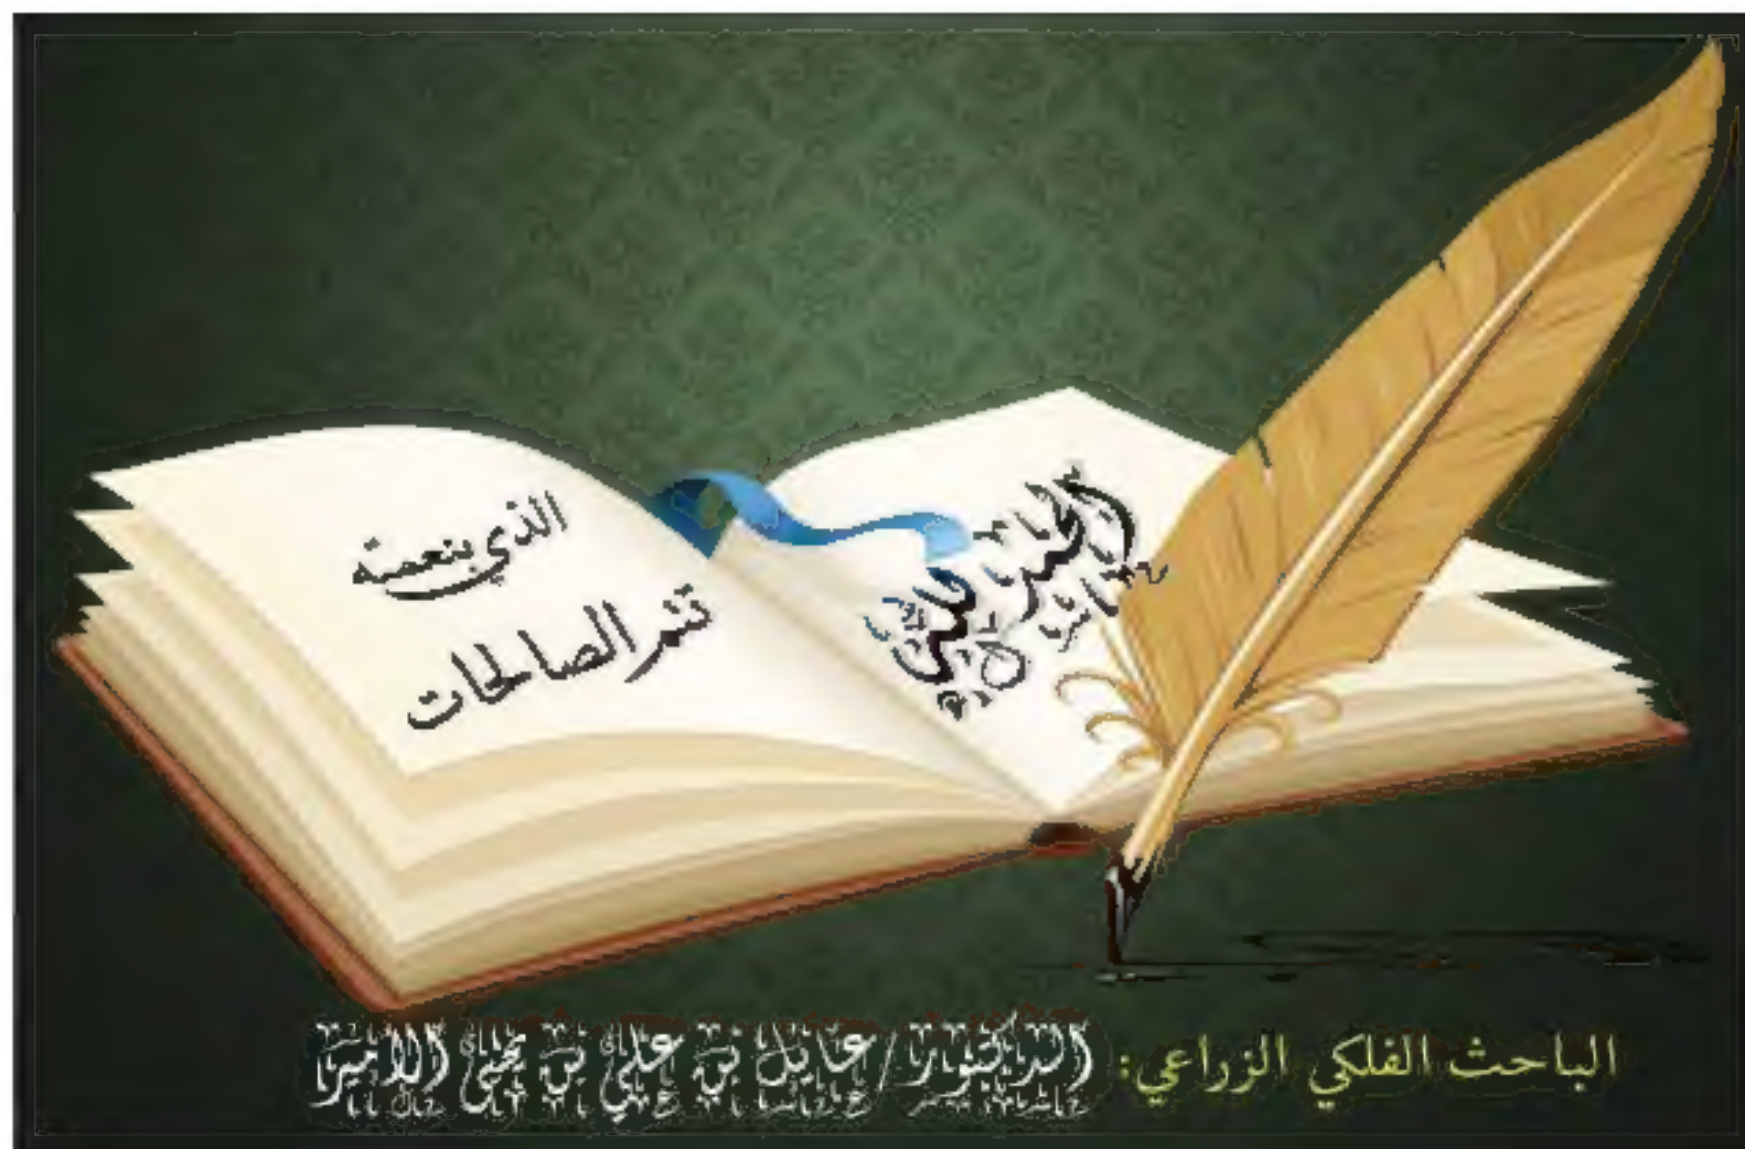 الحمد لله
الذي بنعمته
تتم الصالحات
الباحث الفلكي الزراعي: الدكتور/ بن علي بن يحيى الأمير